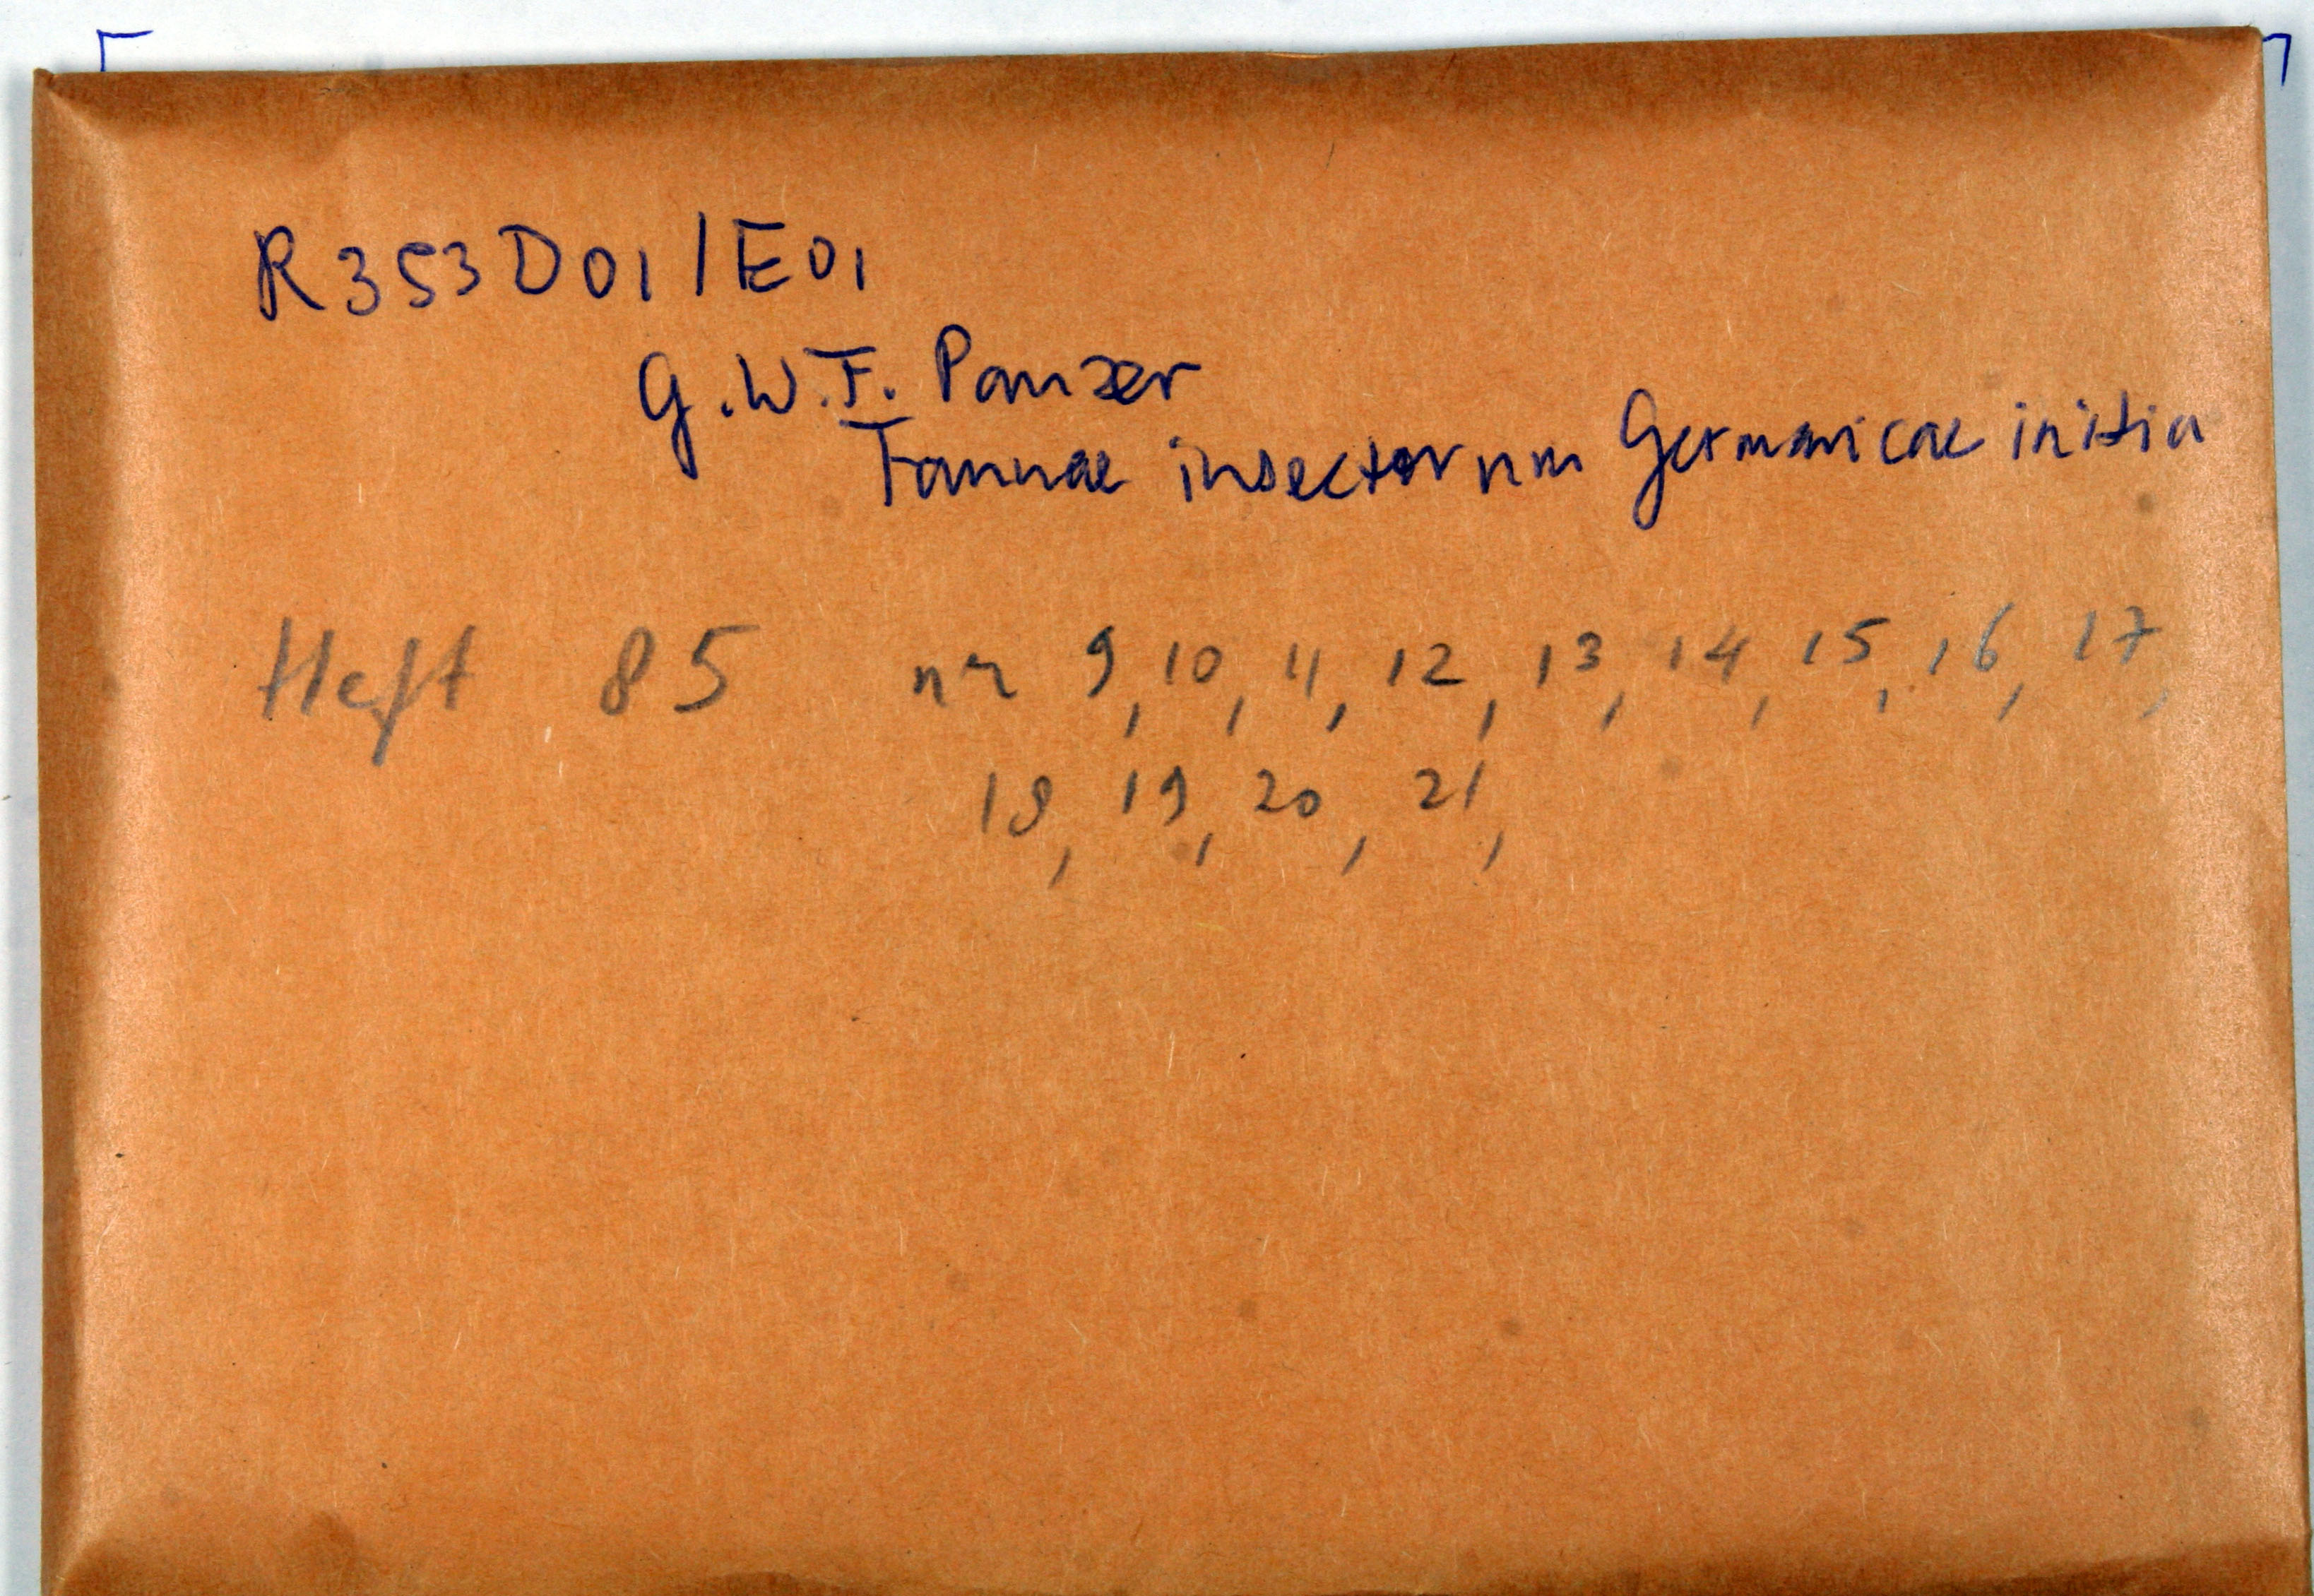 R353D01/E01
G.W.F. Panzer
Faunae insectorum Germanicae initia
Heft 85 nr 9, 10, 11, 12, 13, 14, 15, 16, 17,
18, 19, 20, 21,